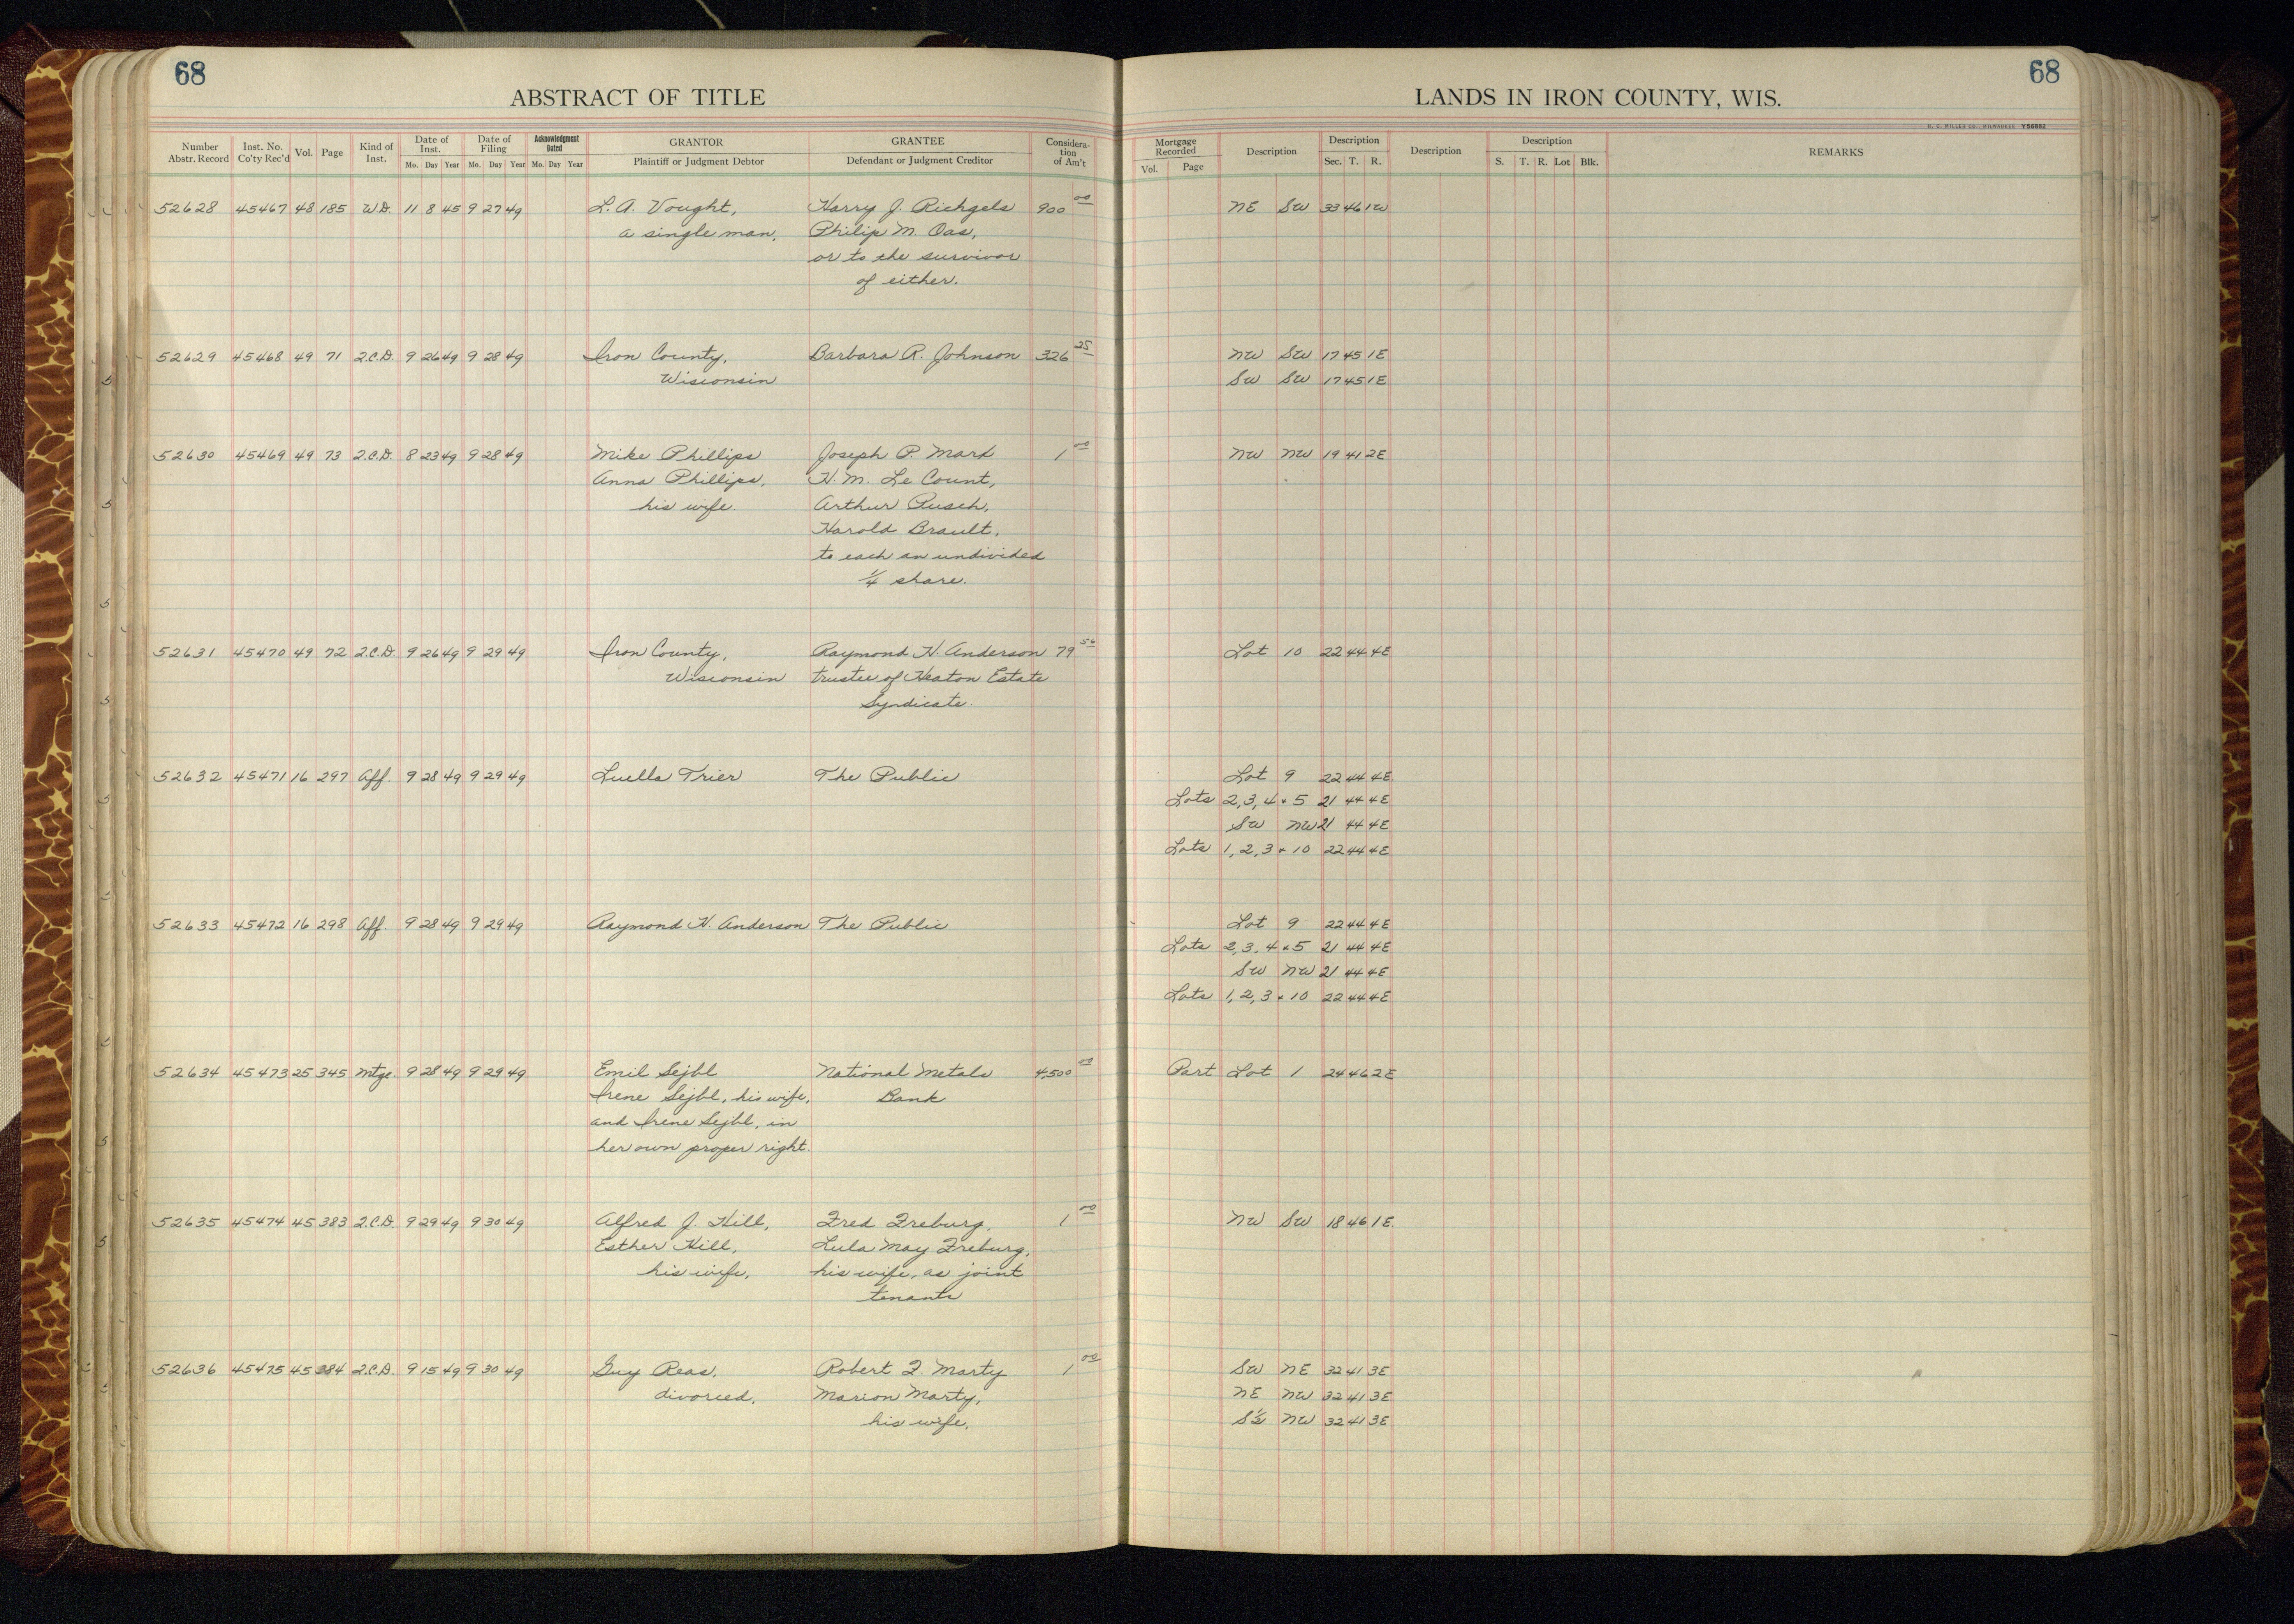 68
ABSTRACT OF TITLE
Number Abstr. Record Inst. No. Co'ty Rec'd Vol. Page Kind of Inst. Date of Inst. Mo. Day Year Date of Filing Mo. Day Year Acknowledgment Dated Mo. Day Year GRANTOR Plaintiff or Judgment Debtor GRANTEE Defendant or Judgment Creditor Considera-tion of Am't
52628 45467 48 185 W.D. 11 8 45 9 27 49 L.A. Vought, Harry J. Richgels 900 00
a single man, Philip M. Oas,
or to the survivor
of either.
52629 45468 49 71 2.C.D. 9 26 49 9 28 49 Iron County, Barbara R. Johnson 326 25
Wisconsin
52630 45469 49 73 2.C.D. 8 23 49 9 28 49 Mike Phillips Joseph P. Mark 1 00
Anna Phillips, H.M. Le Count,
his wife. Arthur Pusch,
Harold Brault,
to each an undivided
1/4 share.
52631 45470 49 72 2.C.D. 9 26 49 9 29 49 Iron County, Raymond H. Anderson 79 56
Wisconsin trustee of Heaton Estate
Syndicate.
52632 45471 16 297 Aff. 9 28 49 9 29 49 Luella Trier The Public
52633 45472 16 298 Aff. 9 28 49 9 29 49 Raymond H. Anderson The Public
52634 45473 25 345 Mtge. 9 28 49 9 29 49 Emil Sejbl National Metals 4,500 00
Irene Sejbl, his wife, Bank
and Irene Sejbl, in
her own proper right.
52635 45474 45 383 2.C.D. 9 29 49 9 30 49 Alfred J. Hill, Fred Freburg, 1 00
Esther Hill, Lula May Freburg,
his wife, his wife, as joint
tenants
52636 45475 45 384 2.C.D. 9 15 49 9 30 49 Guy Reas, Robert F. Marty 1 00
divorced, Marion Marty,
his wife,
68
LANDS IN IRON COUNTY, WIS.
H. C. MILLER CO., MILWAUKEE Y56882
Mortgage Recorded Vol. Page Description Description Sec. T. R. Description Description S. T. R. Lot Blk. REMARKS
NE SW 33 46 1W
NW SW 17 45 1E
SW SW 17 45 1E
NW NW 19 41 2E
Lot 10 22 44 4E
Lot 9 22 44 4E
Lots 2, 3, 4 + 5 21 44 4E
SW NW 21 44 4E
Lots 1, 2, 3 + 10 22 44 4E
Lot 9 22 44 4E
Lots 2, 3, 4 + 5 21 44 4E
SW NW 21 44 4E
Lots 1, 2, 3 + 10 22 44 4E
Part Lot 1 24 46 2E
NW SW 18 46 1E.
SW NE 32 41 3E
NE NW 32 41 3E
S½ NW 32 41 3E